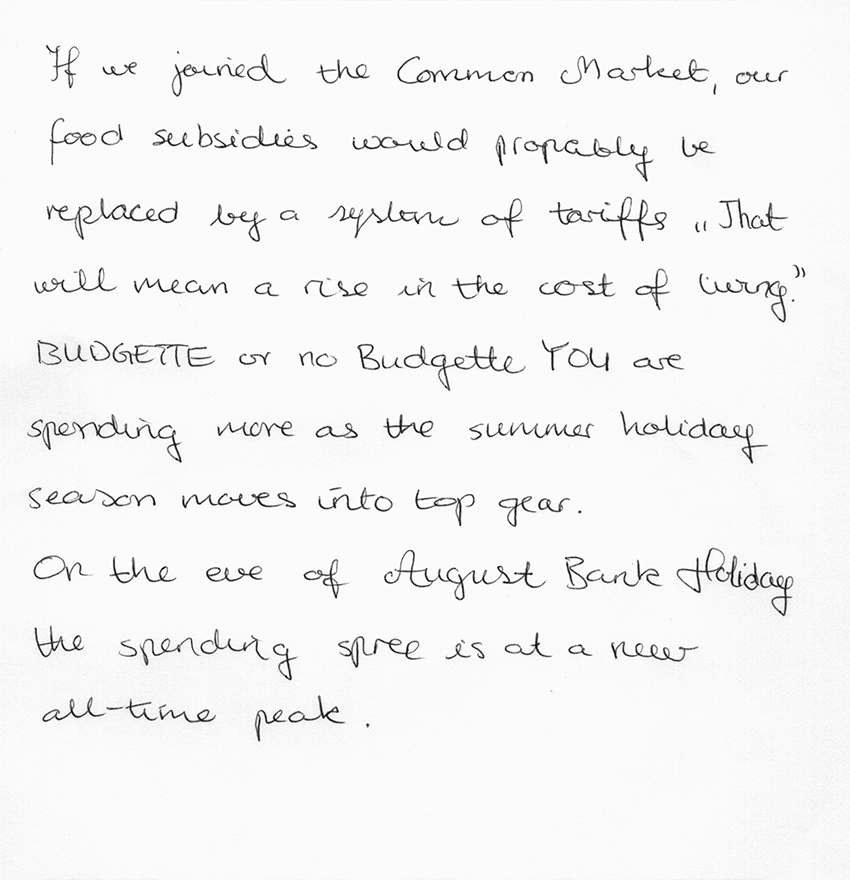 If we joined the Common Market, our
food subsidies would propably be
replaced by a system of tariffs „That
will mean a rise in the cost of living.”
BUDGETTE or no Budgette YOU are
spending more as the summer holiday
season moves into top gear.
On the eve of August Bank Holiday
the spending spree is at a new
all-time peak.